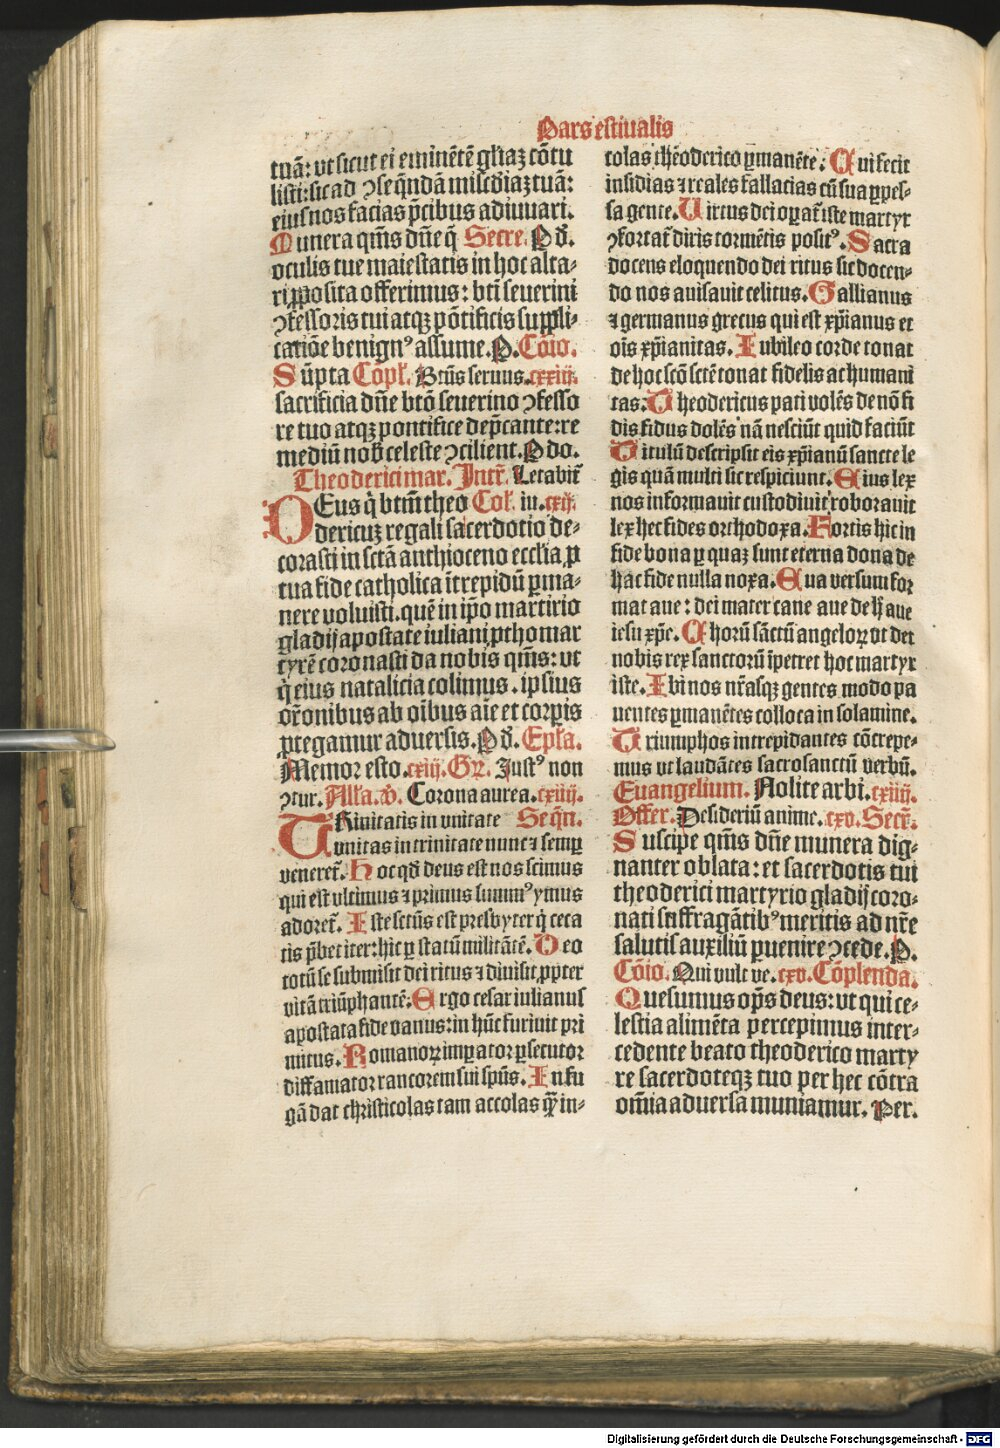 Pars estiualis
tuā: vt sicut ei eminētē gl'iaȝ cōtu
listi: sic ad ꝯseq̄ndā mis'cd'iaȝ tuā:
eius nos facias p̄cibus adiuuari.
Munera qm̄s dn̄e q̄ Secre. P d'.
oculis tue maiestatis in hoc alta⸗
ri ꝓposita offerimus: bt̄i seuerini
ꝯfessoris tui atqꝫ pōtificis suppli⸗
catiōe benignꝰ assume. P. Cōio.
Sūpta Cōpl'. Btūs seruus. cxxiij.
sacrificia dn̄e btō seuerino ꝯfesso
re tuo atqꝫ pontifice dep̄cante: re
mediū nob̄ celeste ꝯcilient. P do.
Theoderici mar. Intr̄. Letabit̄
DEus q̇ btm̄ theo Col'. iu. cxij.
dericuȝ regali sacerdotio de⸗
corasti in sctā anthioceno eccl'ia ꝑ
tua fide catholica ītrepidū ꝑma⸗
nere voluisti. quē in ip̄o martirio
gladij apostate iuliani, ꝓtho mar
tyrē coronasti da nobis qm̄s: vt
q̇ eius natalicia colimus. ipsius
or̄onibus ab oībus aīe et corꝑis
ꝓtegamur aduersis. P d'. Ep̄la.
Memor esto. cxiij. Gr̄. Justꝰ non
ꝯtur. All'a. v̄. Corona aurea. cxiiij.
TRiuitatis in vnitate Seqn̄.
vnitas in trinitate nunc ⁊ semꝑ
veneret̄. Hoc qd̄ deus est nos scimus
qui est vltimus ⁊ primus summꝰ ymus
adoret̄. Iste sctūs est presbyter q̇ ceca
tis p̄bet iter: hic ꝑ statū militātē. Deo
totū se submisit dei ritus ⁊ diuisit, ꝓpter
vitā triūphantē. Ergo cesar iulianus
apostata fide vanus: in hūc furiuit pri
mitus. Romanoꝝ imꝑator ꝑsecutor
diffamator rancorem sui spūs. In fu
gā dat christicolas tam accolas qꝫ̄ in⸗
colas thēoderico ꝑmanēte. Qui fecit
insidias ⁊ reales fallacias cū sua ꝓpes⸗
sa gente. Uirtus dei oꝑat̄ iste martyr
ꝯfortat̄ diris tormētis positꝰ. Sacra
docens eloquendo dei ritus sic docen⸗
do nos auisauit celitus. Gallianus
⁊ germanus grecus qui est xp̄ianus et
oīs xp̄ianitas. Iubileo corde tonat
de hoc scō sctē tonat fidelis ac humani
tas: Theodericus pati volēs de nō fi
dis fidus dolēs nā nesciūt quid faciūt
Titulū descripsit eis xp̄ianū sancte le
gis quā multi sic respiciunt. Eius lex
nos informauit custodiuit roborauit
lex hec fides orthodoxa. Fortis hic in
fide bona ꝑ quaȝ sunt eterna dona de
hac fide nulla noxa. Eua versum for
mat aue: dei mater cane aue de h̄ aue
iesu xp̄e. Chorū sāctū angeloꝝ vt det
nobis rex sanctorū īpetret hoc martyr
iste. Ibi nos nr̄asqꝫ gentes modo pa
uentes ꝑmanētes colloca in solamine.
Triumphos intrepidantes cōtrepe⸗
mus vt laudātes sacrosanctū verbū.
Euangelium. Nolite arbi. cxiiij.
Offer. Desideriū anime. cxv. Secr̄.
Suscipe qm̄s dn̄e munera dig⸗
nanter oblata: et sacerdotis tui
theoderici martyrio gladij coro⸗
nati suffragātibꝰ meritis ad nr̄e
salutis auxiliū ꝑuenire ꝯcede. P.
Cōio. Qui vult ve. cxv. Cōplenda.
Quesumus op̄s deus: vt qui ce⸗
lestia alimēta percepimus inter⸗
cedente beato theoderico marty
re sacerdoteqꝫ tuo per hec cōtra
om̄ia aduersa muniamur. Per.
Digitalisierung gefördert durch die Deutsche Forschungsgemeinschaft - DFG